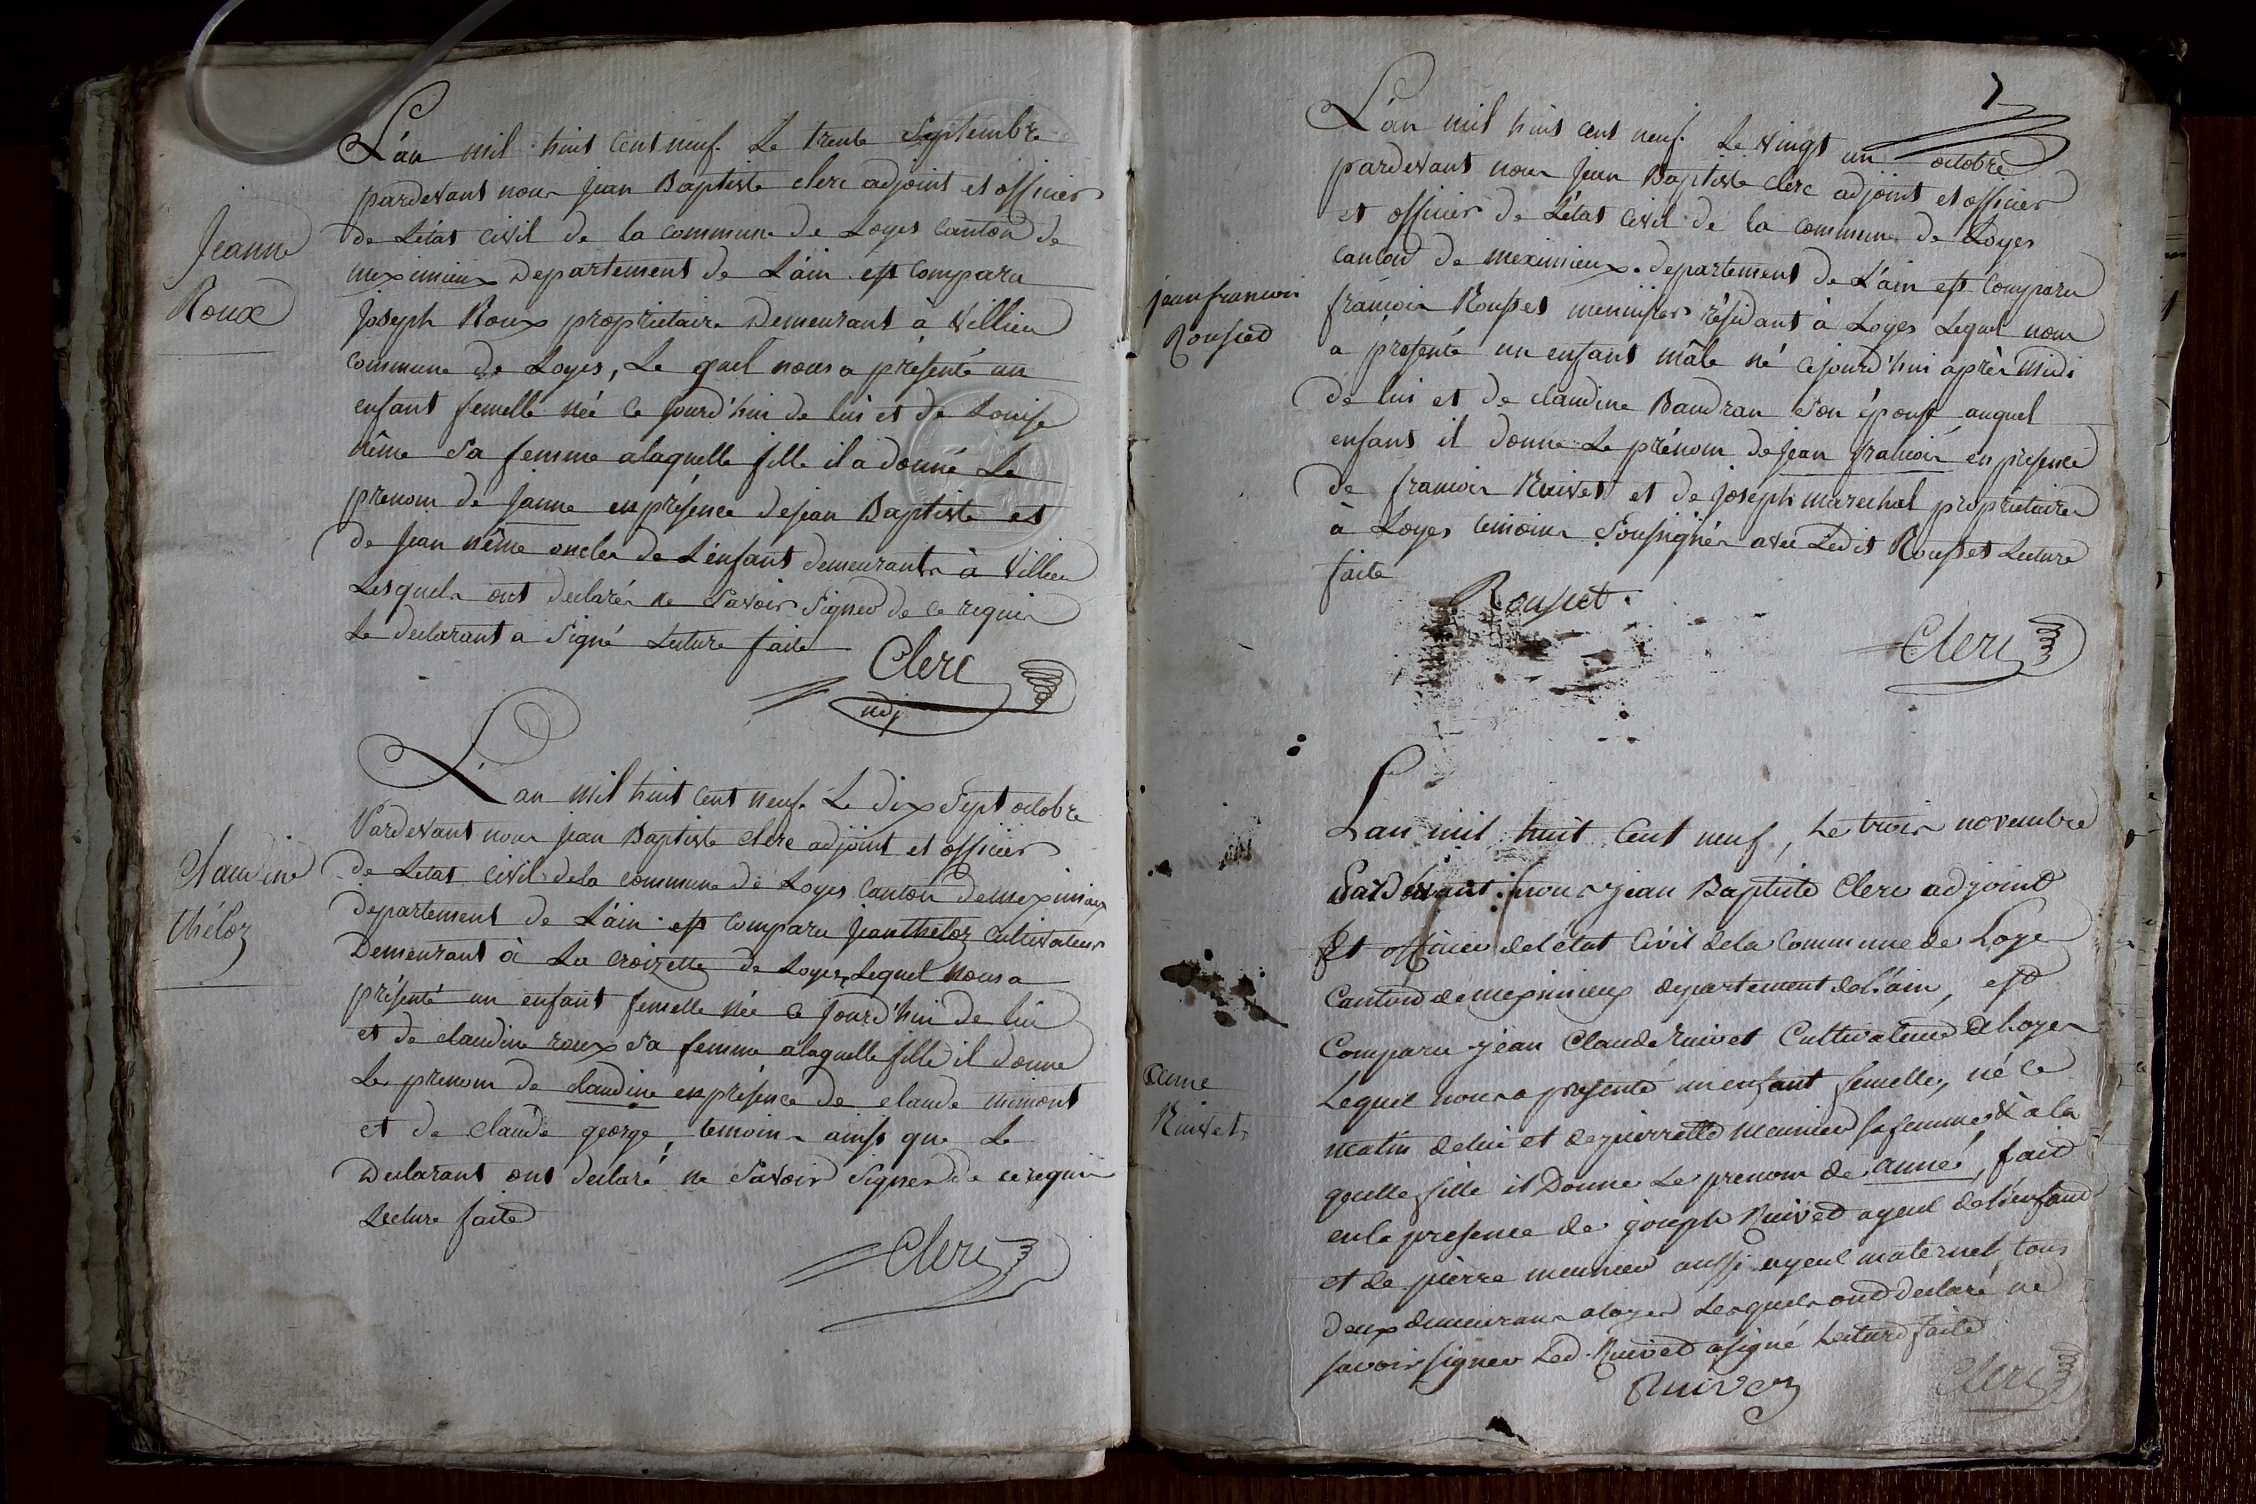 Jeanne
Roux
L'an mil huit cent neuf. Le trente Septembre
pardevant nous jean Baptiste clerc adjoint et officier
de L'état civil de la commune de Loyes canton de
meximieux Departement de L'ain est comparu
Joseph Roux proprietaire Demeurant a Villieu
commune de Loyes, Le quel nous a présenté un
enfant femelle née ce jourd'hui de lui et de Louise
même sa femme a laquelle fille il a donné Le
prenom de Janne en présence de jean Baptiste et
de jean même oncles de L'enfant demeurants à Villieu
Lesquels ont declarés ne savoir signer de ce requis
Le declarant a signé Lecture faite
Clerc
adj
claudine
théloz
L'an mil huit cent neuf. Le dix sept octobre
Pardevant nous jean Baptiste clerc adjoint et officier
de L'etat civil de la commune de Loyes canton de meximieux
departement de L'ain. est comparu jean théloz cultivateur
Demeurant à La croizette de Loyes, Lequel nous a
présenté un enfant femelle née ce jourd'hui de lui
et de claudine roux sa femme a laquelle fille il donne
Le prenom de claudine en présence de claude mimont
et de claude george, temoins ainsi que Le
Declarant ont declaré ne savoir signer de ce requis
Lecture faite
Clerc
7
jean francois
Rousset
L'an mil huit cent neuf. Le vingt un octobre
pardevant nous jean Baptiste clerc adjoint et officier
et officier de L'état civil de la commune de Loyes
canton de meximieux. departement de L'ain est comparu
françois Rousset menuisier résidant à Loyes Lequel nous
a présenté un enfant mâle né cejourd'hui après midi
de lui et de claudine Baudran son épouse auquel
enfant il donne Le prénom de jean francois en présence
de francois Ruivet et de joseph marechal proprietaires
à Loyes temoins soussignés avec Ledit Rousset Lecture
faite
Rousset.
Clerc
anne
Ruivet
L'an mil huit cent neuf, Le trois novembre
Pardevant nous jean Baptiste Clerc adjoint
Et officier de l'état Civil de la Commune de Loye
Canton de meximieux departement de l'ain, est
Comparu jean Claude Ruivet Cultivateur a Loyes
Lequel nous a presenté un enfant femelle, né ce
matin de lui et de pierrette meunier sa femme & a la
quelle fille il Donne Le prenom de anne, fait
en la presence de joseph Ruivet ayeul de l'enfant
et de pierre meunier aussi ayeul maternel tous
deux demeurans a Loyes Lesquels ont declaré ne
savoir signer Led. Ruivet a signé Lecture faite
Ruivet
Clerc